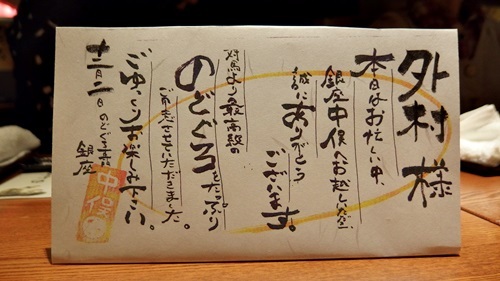 外村 様
本日はお忙しい中、
銀座中俣へお越しいただき、
誠にありがとう
ございます。
対馬より最高級の
のどぐろをたっぷり
ご用意させていただきました。
ごゆっくりお楽しみ下さい。
十二月一日 のどぐろ専
銀座
中俣